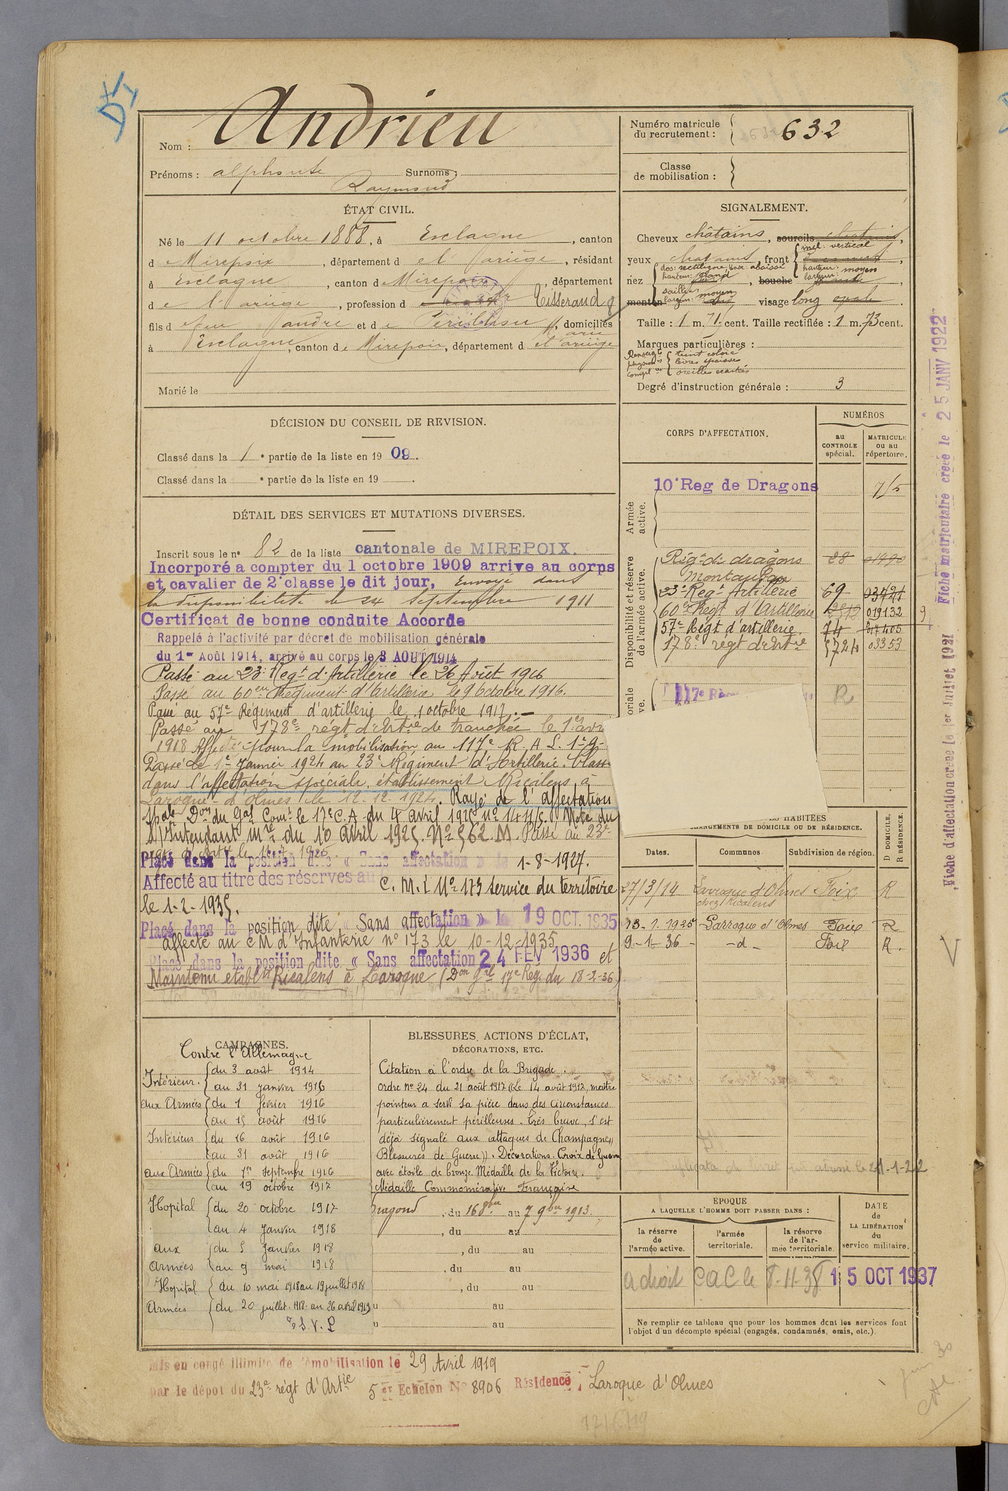 Nom : Andrieu
Prénoms : alphonse Surnoms :
Raymond
ÉTAT CIVIL.
Né le 11 octobre 1888, à Esclagne, canton
de Mirepoix, département de l'ariège, résidant
à Esclagne, canton de Mirepoix, département
de l'ariège, profession de Tisserand
fils de feu andré et de, domiciliés
à Esclagne, canton de Mirepoix, département de l'ariège
Marié le
DÉCISION DU CONSEIL DE REVISION.
Classé dans la 1e partie de la liste en 1909.
Classé dans la e partie de la liste en 19
DÉTAIL DES SERVICES ET MUTATIONS DIVERSES.
Inscrit sous le n° 82 de la liste cantonale de MIREPOIX.
Incorporé a compter du 1 octobre 1909 arrive au corps
et cavalier de 2e classe le dit jour, Envoyé dans
la disponibilité le 24 septembre 1911
Certificat de bonne conduite Accordé
Rappelé à l'activité par décret de mobilisation générale
du 1er Août 1914, arrivé au corps le 3 AOUT 1914
Passé au 23e Regt d'Artillerie le 26 Août 1916
Passé au 60eme Régiment d'Artillerie le 9 Octobre 1916.
Passé au 57e Régiment d'artillerie le 1 octobre 1917.
Passé au 178e régt d'artie de tranchée le 1er avr
1918 Affecté pour la mobilisation au 117e R. A. L. 1e G.
Passé le 1er Janvier 1924 au 23e Régiment d'Artillerie. Classé
dans l'affectation spéciale, établissement Ricalens, à
Laroque-d'Olmes le 12.12.1924. Rayé de l'affectation
Spale Don du Gal Comt le 17e C.A. du 4 avril 1925 n° 1411/5. Note du
S/Intendant mre du 10 avril 1925. N° 562.M. Passé au 23e
Placé dans la position dite « Sans affectation » le 1-8-1927.
Affecté au titre des réserves au C.M.I. N° 173 service du territoire
le 1-2-1935.
Placé dans la position dite « Sans affectation » le 19 OCT. 1935
affecté au CM d'Infanterie n° 173 le 10-12-1935
Placé dans la position dite « Sans affectation 24 FEV 1936 et
Maintenu établt Ricalens à Laroque (Don Gale 17e Reg. du 18-2-36).
CAMPAGNES.
Contre l'Allemagne
Intérieur. du 3 août 1914
au 31 janvier 1916
aux Armées du 1 février 1916
au 15 août 1916
Intérieur du 16 août 1916
au 31 août 1916
aux Armées du 1er septembre 1916
au 19 octobre 1917
Hopital du 20 octobre 1917
au 4 janvier 1918
aux du 5 janvier 1918
Armées au 9 mai 1918
Hopital du 10 mai 1918 au 19 juillet 1918
Armées du 20 juillet 1918 au 26 avril 1919
BLESSURES, ACTIONS D'ÉCLAT,
DÉCORATIONS, ETC.
Citation à l'ordre de la Brigade.
ordre n° 24 du 21 août 1917 « Le 14 août 1917, maître
pointeur a servi sa pièce dans des circonstances
particulièrement périlleuses. Très brave, s'est
déjà signalé aux attaques de Champagne »
Blessures de Guerre ». Décorations. Croix de Guerre
avec étoile de bronze. Médaille de la Victoire.
Médaille Commémorative Française
Dragons, du 16 8bre au 7 9bre 1913.
, du au
, du au
, du au
, du au
au
au
mis en congé illimité de démobilisation le 29 Avril 1919
par le dépôt du 23e régt d'Artie 5e Echelon N° 8906 Résidence : Laroque d'Olmes
Numéro matricule
du recrutement : 632
Classe
de mobilisation :
SIGNALEMENT.
Cheveux châtains, sourcils
yeux, front incl. vertical
hauteur moyen
nez dos rectiligne, base abaissée
bouche
menton visage long
Taille : 1 m. 71 cent. Taille rectifiée : 1 m. 73 cent.
Marques particulières :
teint coloré
lèvres épaisses
oreilles écartées
Degré d'instruction générale : 3
CORPS D'AFFECTATION.
NUMÉROS
au CONTROLE spécial.
MATRICULE ou au répertoire.
Armée active.
10e Reg de Dragons
Disponibilité et réserve de l'armée active.
Régt de dragons 28
Montauban
23e Regt Artillerie 69
60e Regt d'Artillerie 019132
57e Régt d'artillerie 74
178e régt d'artie 5724 03353
117e R
R
HABITÉES
CHANGEMENTS DE DOMICILE OU DE RÉSIDENCE.
Dates. Communes Subdivision de région. D DOMICILE. R RÉSIDENCE.
27/3/14 Larroque d'Olmes Foix R
chez Ricalens
13.1.1925 Larroque d'Olmes Foix R
9-1-36 -d- Foix R.
ÉPOQUE
A LAQUELLE L'HOMME DOIT PASSER DANS :
la réserve de l'armée active.
l'armée territoriale.
la réserve de l'armée territoriale.
DATE de LA LIBÉRATION du service militaire.
a droit CAC le 8-11-38 15 OCT 1937
Ne remplir ce tableau que pour les hommes dont les services font
l'objet d'un décompte spécial (engagés, condamnés, omis, etc.).
Fiche d'affectation créée le 1er Juillet 1921 Fiche matriculaire créée le 25 JANV 1922